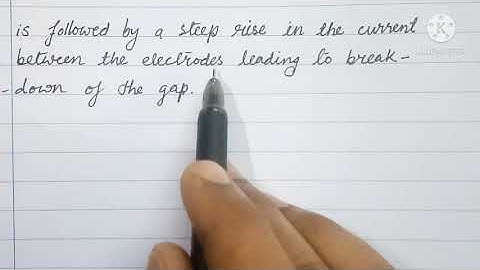 is followed by a steep rise in the current
between the electrodes leading to break-
-down of the gap.